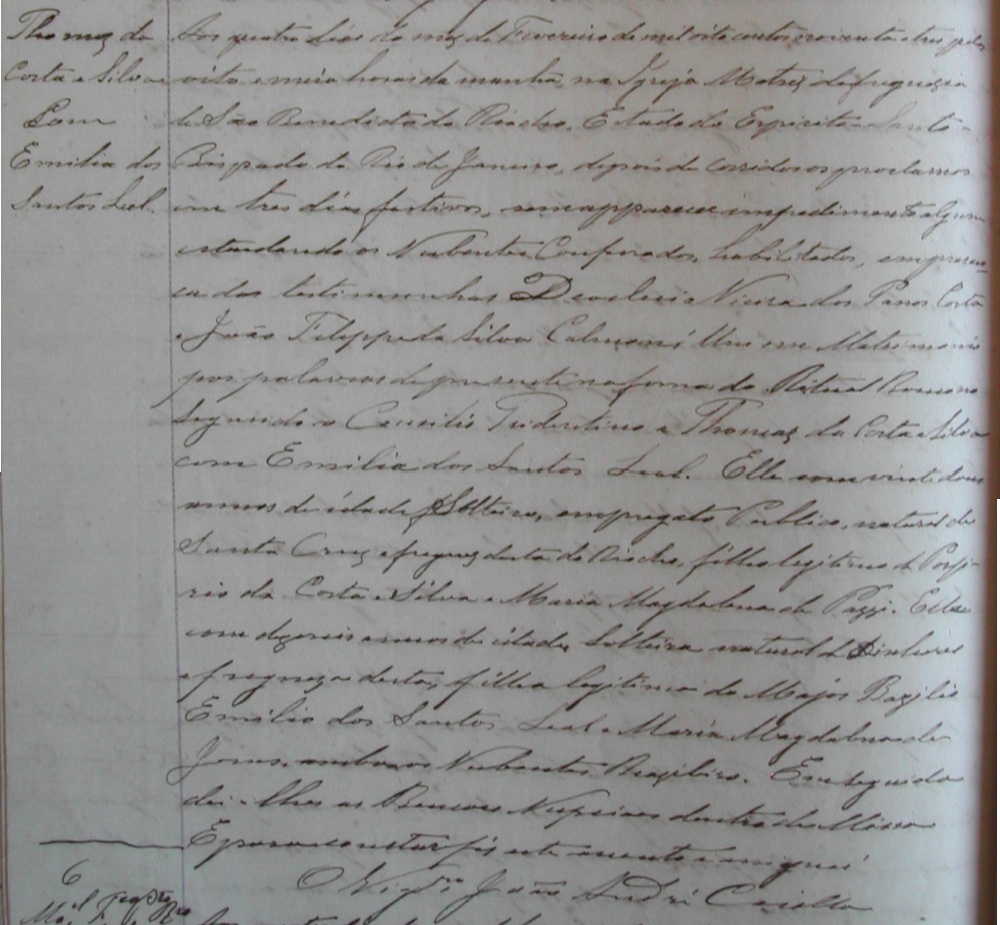 Thomaz da
Costa e Silva
Com
Emilia dos
Santos Leal.
Aos quatro dias do mez de Fevereiro de mil oito centos noventa e tres pelas
oito e meia horas da manhã, na Igreja Matriz da freguezia
de São Benedicto do Riacho, Estado do Espirito Santo
Bispado do Rio de Janeiro, depois de corridos os proclamos
em tres dias festivos, sem apparecer impedimento algum
estando os Nubentes Confessados, habilitados, em presen-
ça das testimunhas Vieira dos Passos Costa
e João Filippe da Silva Calmon, Uni em Matrimonio
por palavras de presente na forma do Ritual Romano
segundo o Concilio Tridentino a Thomaz da Costa e Silva
com Emilia dos Santos Leal. Elle com vinte dous
annos de idade, Solteiro, empregato Publico, natural de
Santa Cruz e freguez desta do Riacho, filho legitimo de Porfi-
rio da Costa e Silva e Maria Magdalena de Pazzi. Ella
com dezeseis annos de idade, Solteira natural de Linhares
e fregueza desta, filha legitima do Major Bazilio
Emilio dos Santos Leal e Maria Magdalena de
Jesus, ambos os Nubentes Brazileiros. Em seguida
dei-lhes as Bençoes Nupciaes dentro da Missa
E para constar fiz este assento e assignei
O Vigr.º João André Casella
6